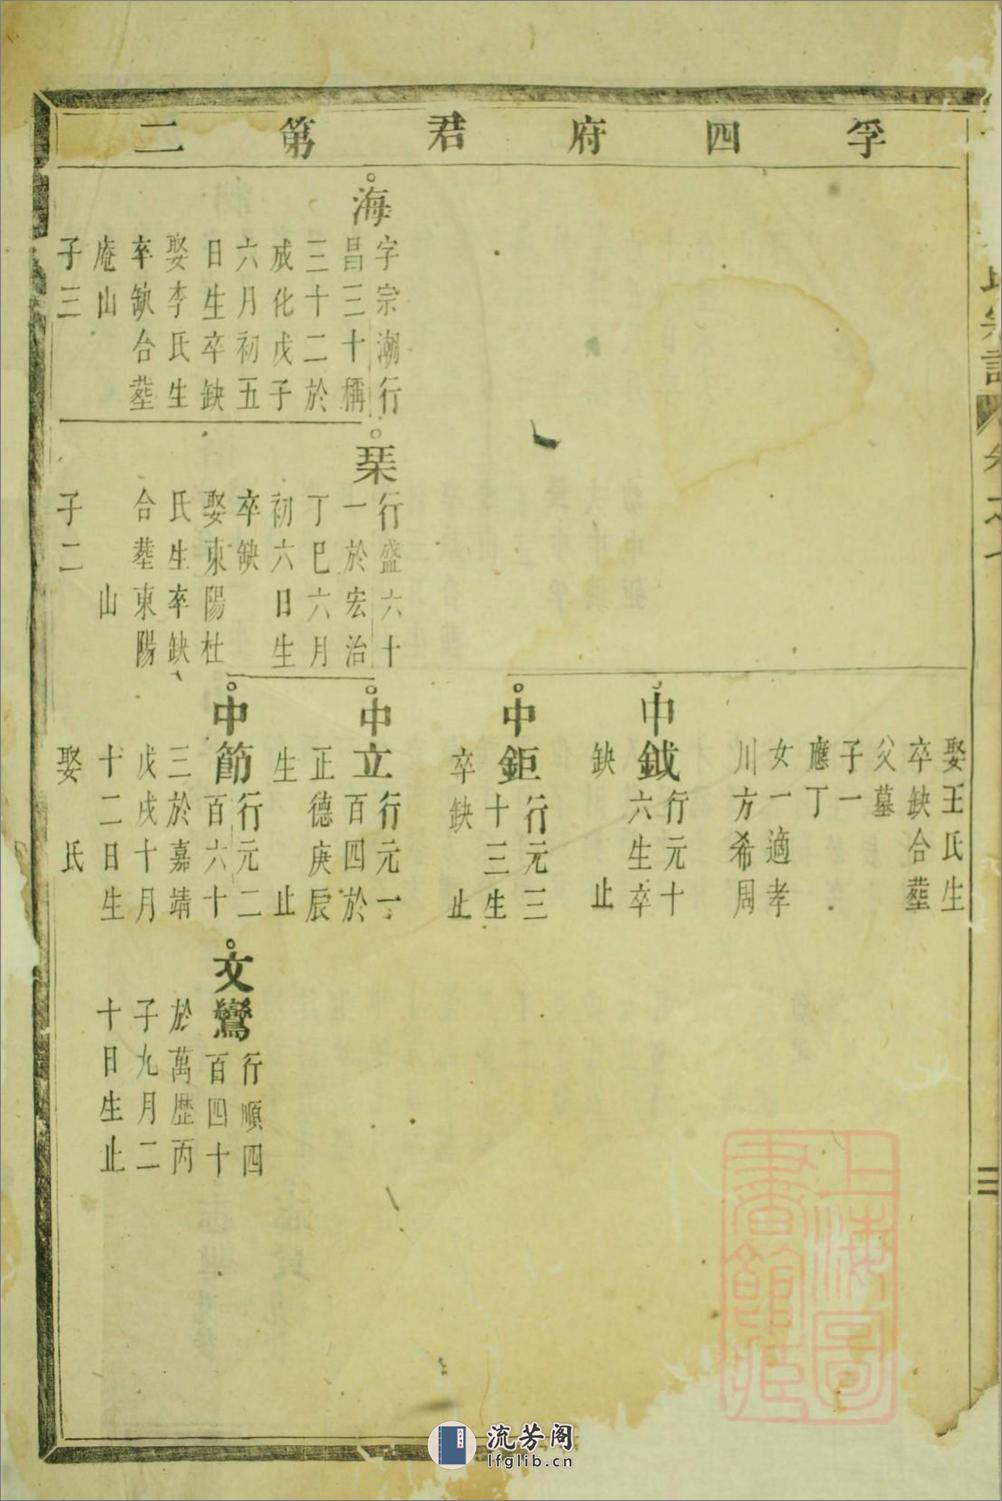 孚四府君第二
氏宗譜
海
字宗潮行
昌三十稱
三十二於
成化戊子
六月初五
日生卒缺
娶李氏生
卒缺合塟
庵山
子三
琹
行盛六十
一於宏治
丁巳六月
初六日生
卒缺
娶東陽杜
氏生卒缺
合塟東陽
山
子二
娶王氏生
卒缺合塟
父墓
子一
應丁
女一適孝
川方希周
中鉞
行元十
六生卒
缺止
中鉅
行元三
十三生
卒缺止
中立
行元一
百四於
正德庚辰
生止
中節
行元二
百六十
三於嘉靖
戊戌十月
十二日生
娶氏
文鸞
行順四
百四十
於萬歷丙
子九月二
十日生止
三
上海圖
書館藏
流芳阁
lfglib.cn